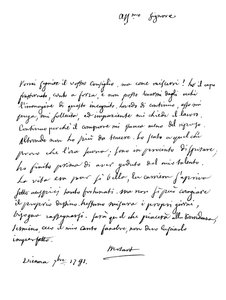 Aff.mo Signore
Vorrei seguire il vostro consiglio, ma come riuscirvi? ho il capo
frastornato, conto a forza, e non posso levarmi dagli occhi
l'immagine di questo incognito. Lo vedo di continuo, esso mi
prega, mi sollecita, ed impaziente mi chiede il lavoro.
Continuo perchè il comporre mi stanca meno del riposo.
Altronde non ho più da tremere. Lo sento a quel che
provo che l'ora suona, sono in procinto di spirare,
ho finito prima di aver goduto del mio talento.
La vita era pur sì bella, la carriera s'apriva
sotto auspici tanto fortunati ma non si può cangiare
il proprio destino. Nessuno misura i propri giorni,
bisogna rassegnarsi. sarà quel che piacerà alla Providenza,
termino, ecco il mio canto funebre, non devo lasciarlo
imperfetto.
Mozart
Vienna 7bre 1791.